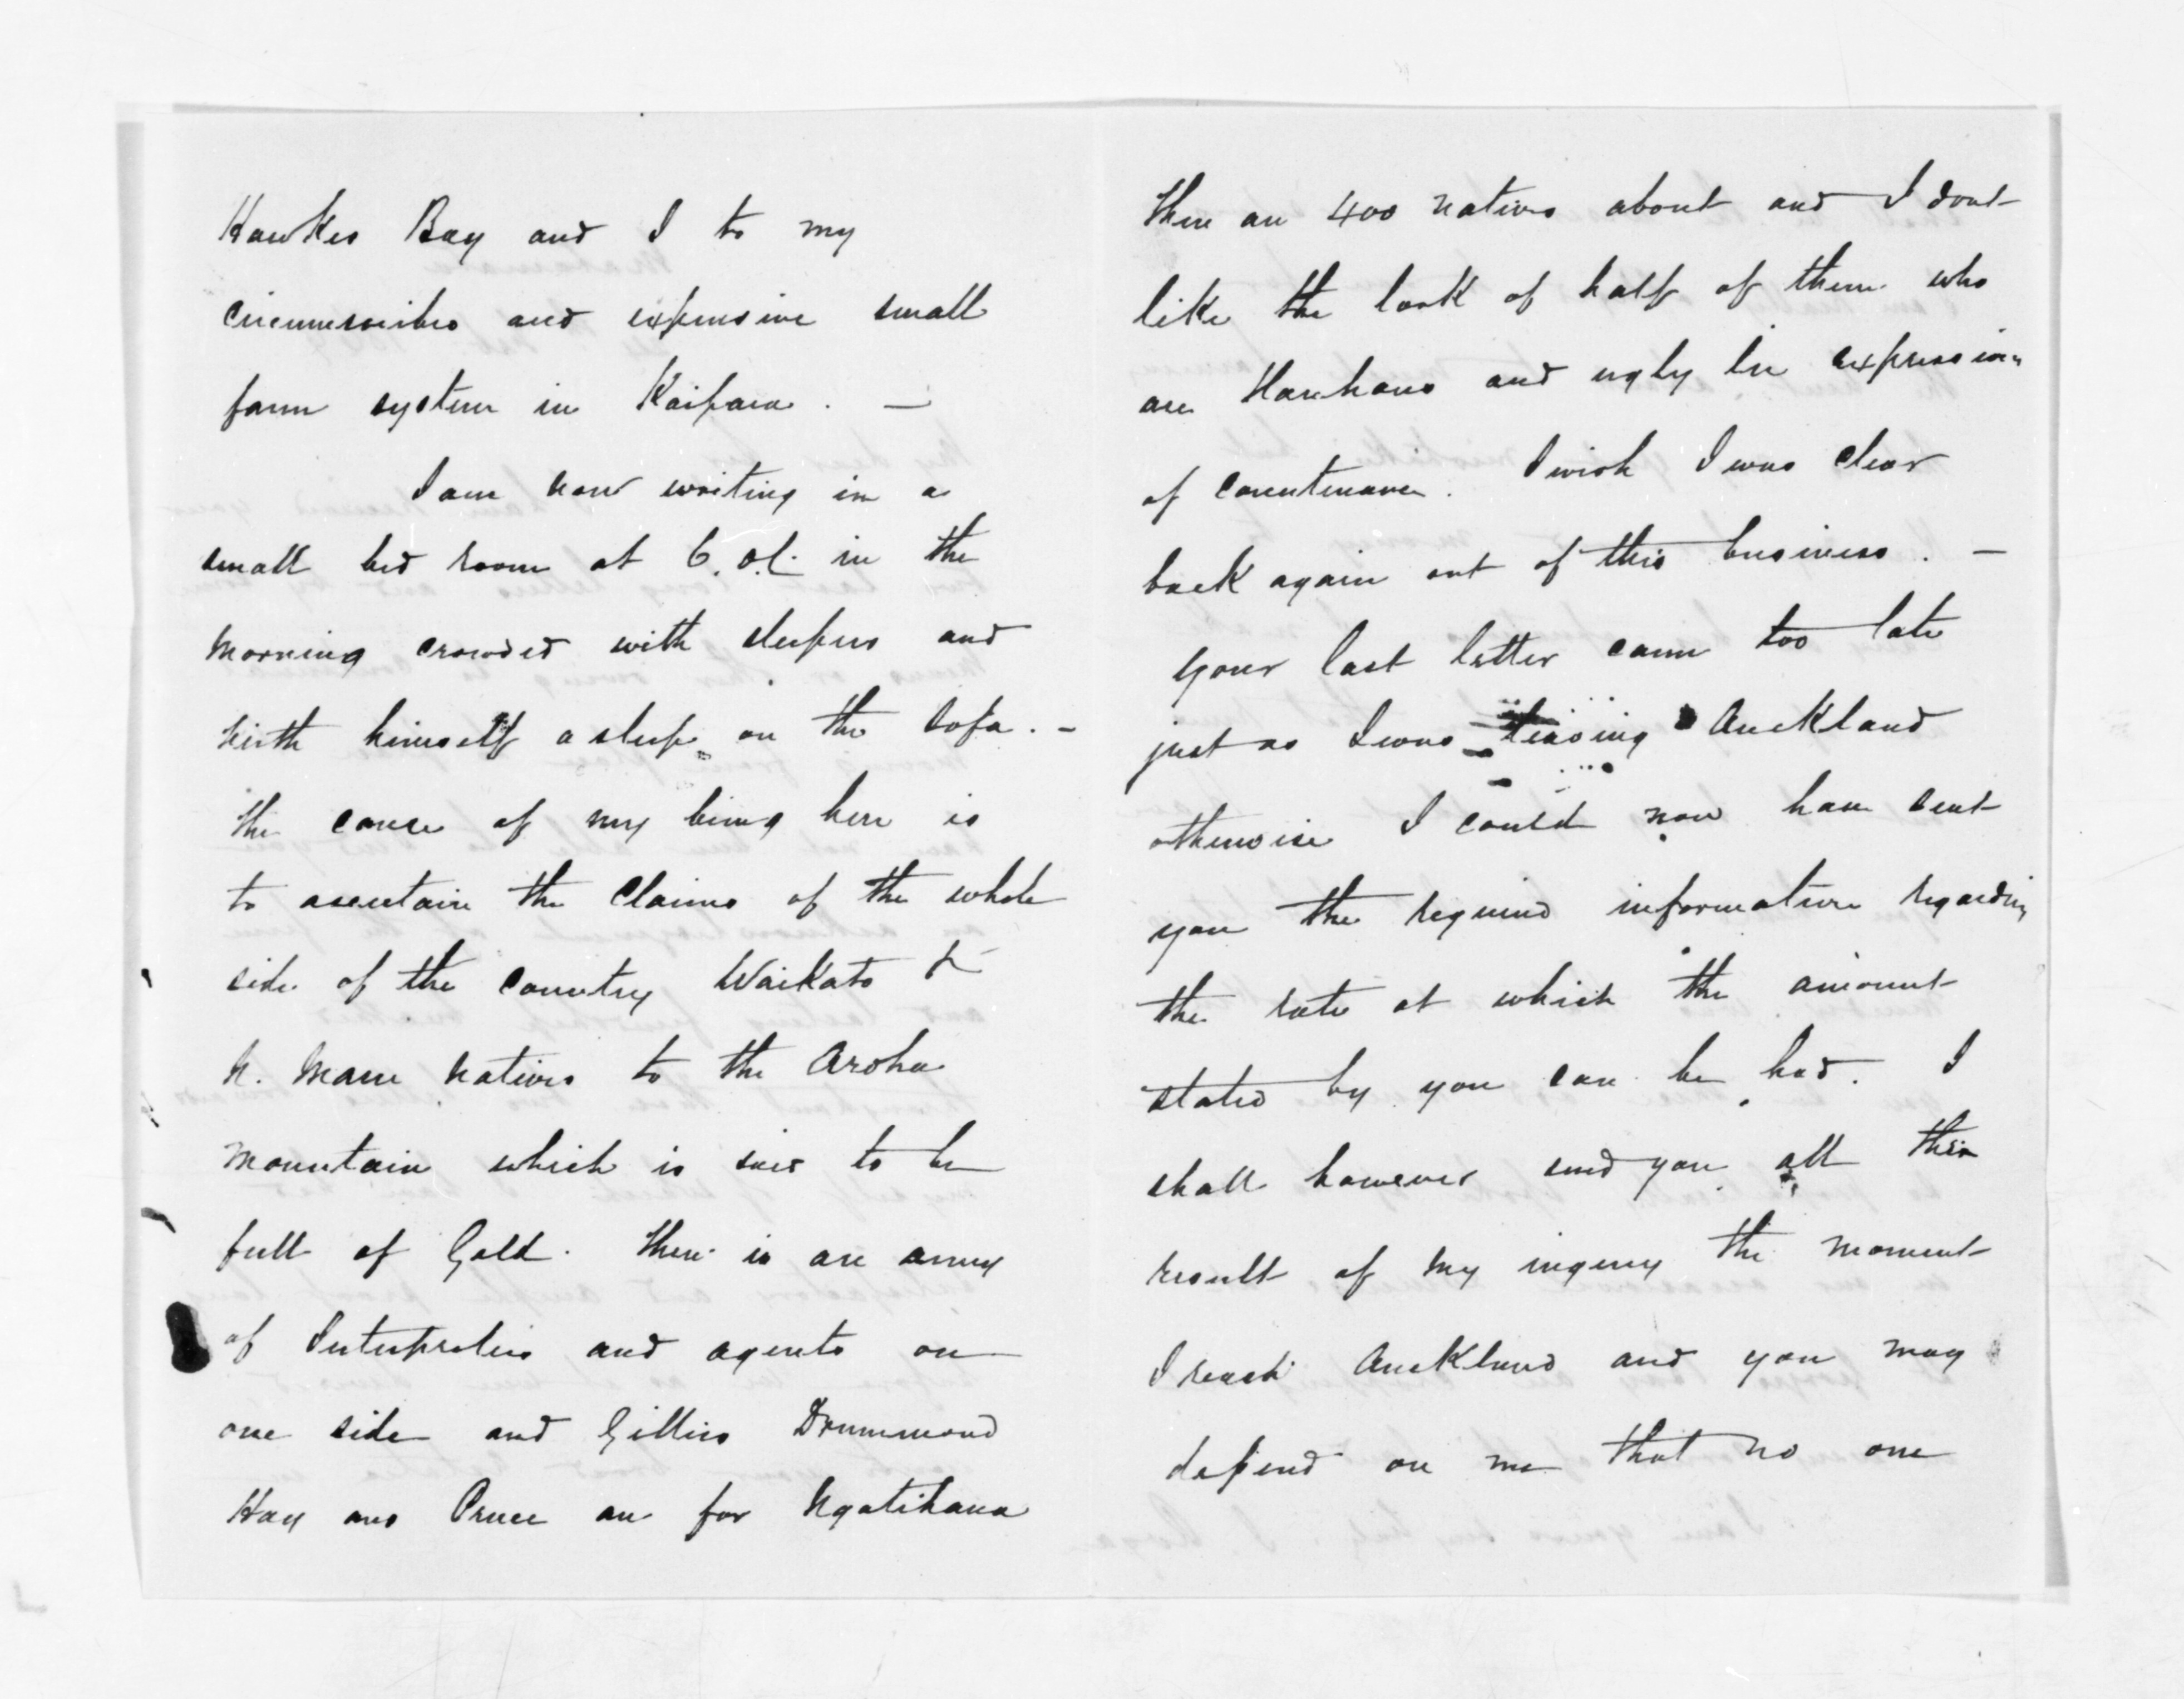 Hawkes Bay and I to my
circumscribed and expensive small
farm system in Kaipara. —
I am now writing in a
small bed room at 6. o.c. in the
morning crowded with sleepers and
himself asleep on the sofa. –
the cause of my being here is
to ascertain the Claims of the whole
side of the Country Waikato &
N. Manu natives to the Aroha
mountain which is said to be
full of Gold. There is an army
of Interpreters and agents on
one side and Gillies Drummond
Hay and Preece are for Ngatihaua
There are 400 natives about and I dont
like the look of half of them who
are Hauhaus and ugly in expression
of countenance. I wish I was clear
back again out of this business. —
your last letter came too late
just as I was leaving Auckland
otherwise I could now have sent
you the required information regarding
the rate at which the amount
stated by you can be had. I
shall however send you all this
result of my inquiry the moment
I reach Auckland and you may
depend on me that no one